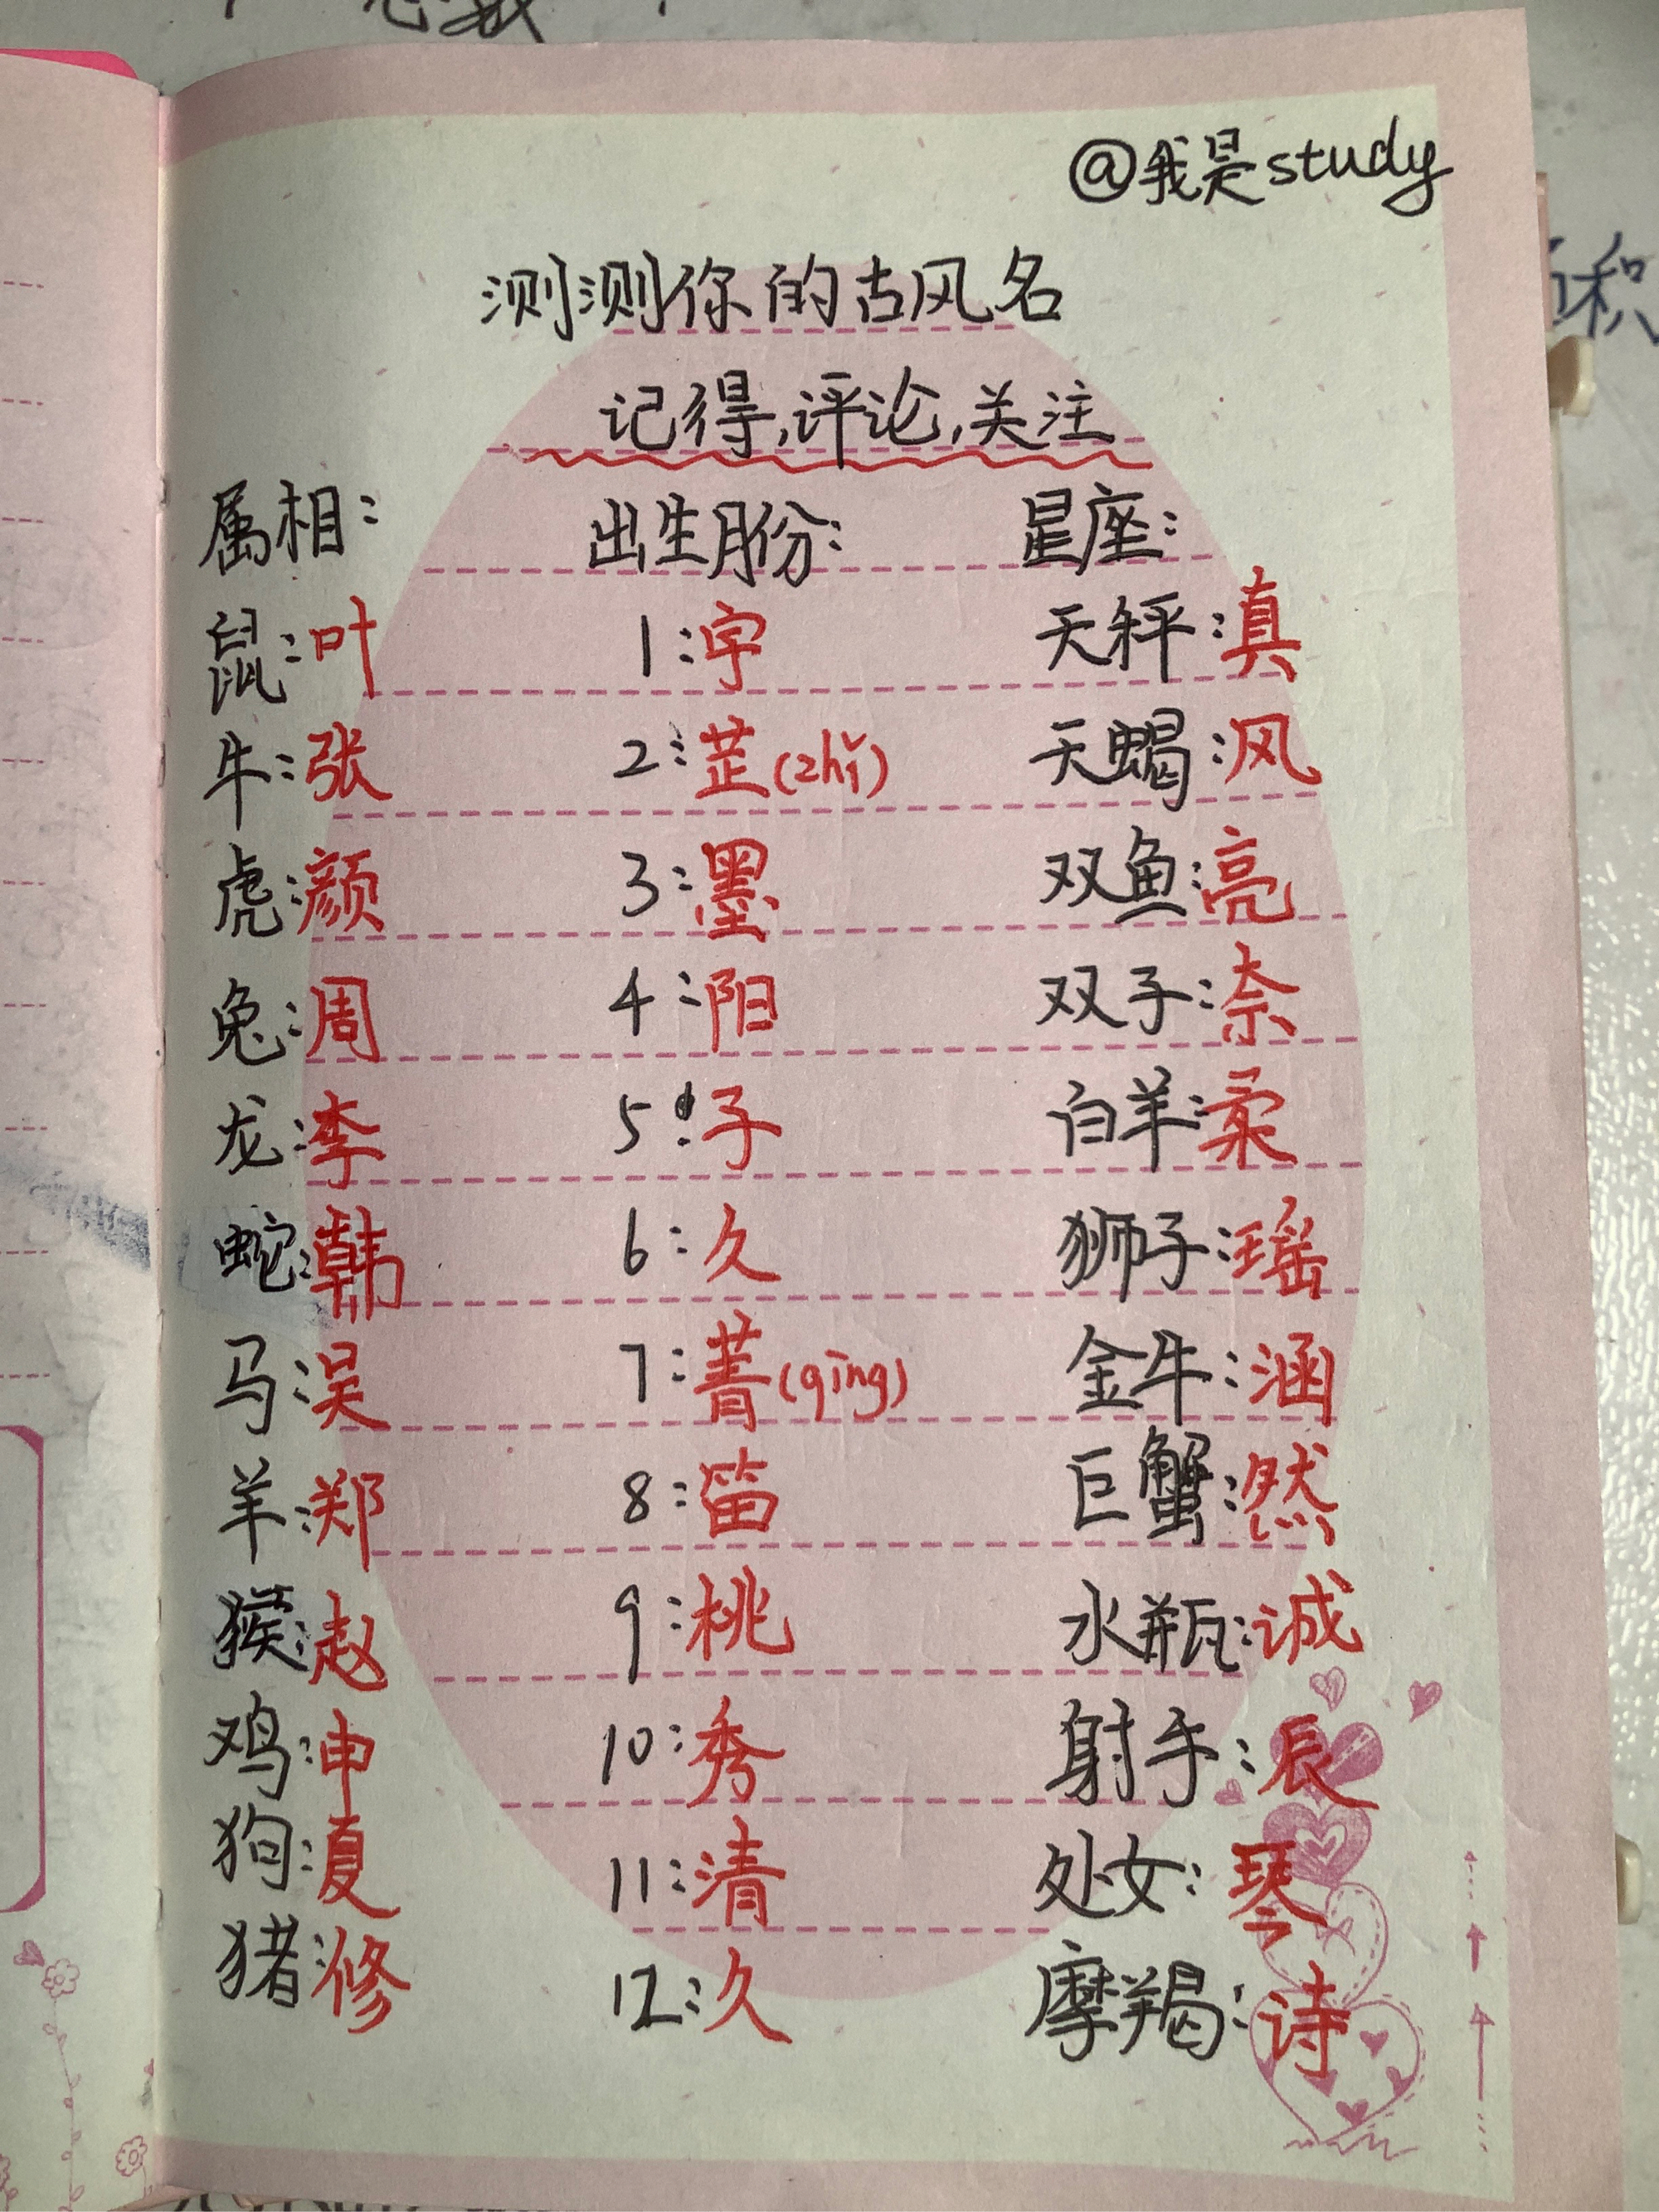 总数
@我是study
测测你的古风名
记得,评论,关注
属相: 出生月份: 星座:
鼠:叶 1:宇 天秤:真
牛:张 2:芷(zhǐ) 天蝎:风
虎:颜 3:墨 双鱼:亮
兔:周 4:阳 双子:奈
龙:李 5:子 白羊:柔
蛇:韩 6:久 狮子:瑶
马:吴 7:菁(qīng) 金牛:涵
羊:郑 8:笛 巨蟹:然
猴:赵 9:桃 水瓶:诚
鸡:申 10:秀 射手:辰
狗:夏 11:清 处女:琴
猪:修 12:久 摩羯:诗
积